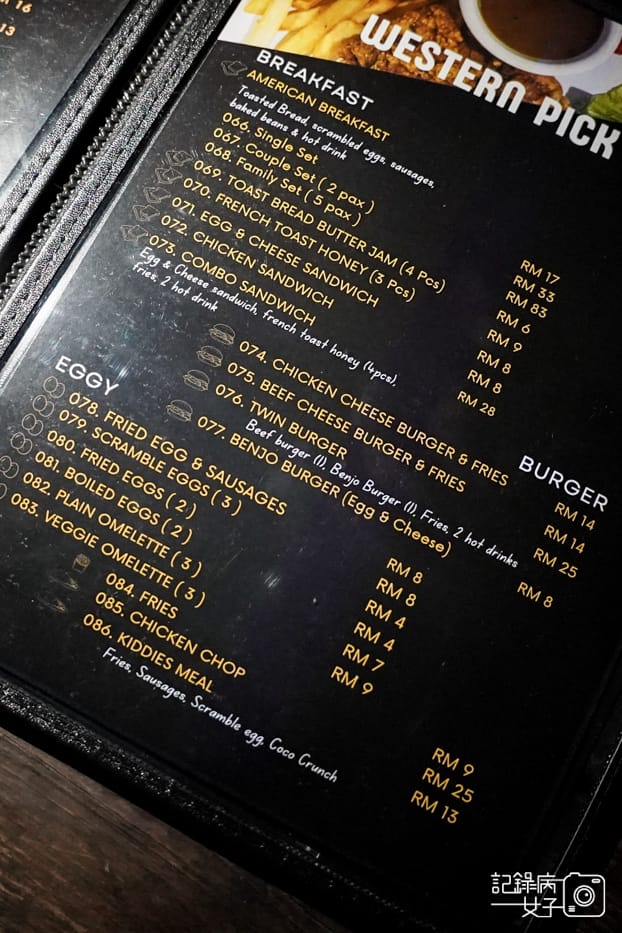 16
13
WESTERN PICK
BREAKFAST
AMERICAN BREAKFAST
Toasted Bread, scrambled eggs, sausages,
baked beans & hot drink
066. Single Set RM 17
067. Couple Set ( 2 pax ) RM 33
068. Family Set ( 5 pax ) RM 83
069. TOAST BREAD BUTTER JAM (4 Pcs) RM 6
070. FRENCH TOAST HONEY (3 Pcs) RM 9
071. EGG & CHEESE SANDWICH RM 8
072. CHICKEN SANDWICH RM 8
073. COMBO SANDWICH RM 28
Egg & Cheese sandwich, french toast honey (4pcs),
fries, 2 hot drink
BURGER
074. CHICKEN CHEESE BURGER & FRIES RM 14
075. BEEF CHEESE BURGER & FRIES RM 14
076. TWIN BURGER RM 25
Beef burger (1), Benjo Burger (1), Fries, 2 hot drinks
077. BENJO BURGER (Egg & Cheese) RM 8
EGGY
078. FRIED EGG & SAUSAGES RM 8
079. SCRAMBLE EGGS ( 3 ) RM 8
080. FRIED EGGS ( 2 ) RM 4
081. BOILED EGGS ( 2 ) RM 4
082. PLAIN OMELETTE ( 3 ) RM 7
083. VEGGIE OMELETTE ( 3 ) RM 9
084. FRIES RM 9
085. CHICKEN CHOP RM 25
086. KIDDIES MEAL RM 13
Fries, Sausages, Scramble egg, Coco Crunch
記錄病
女子